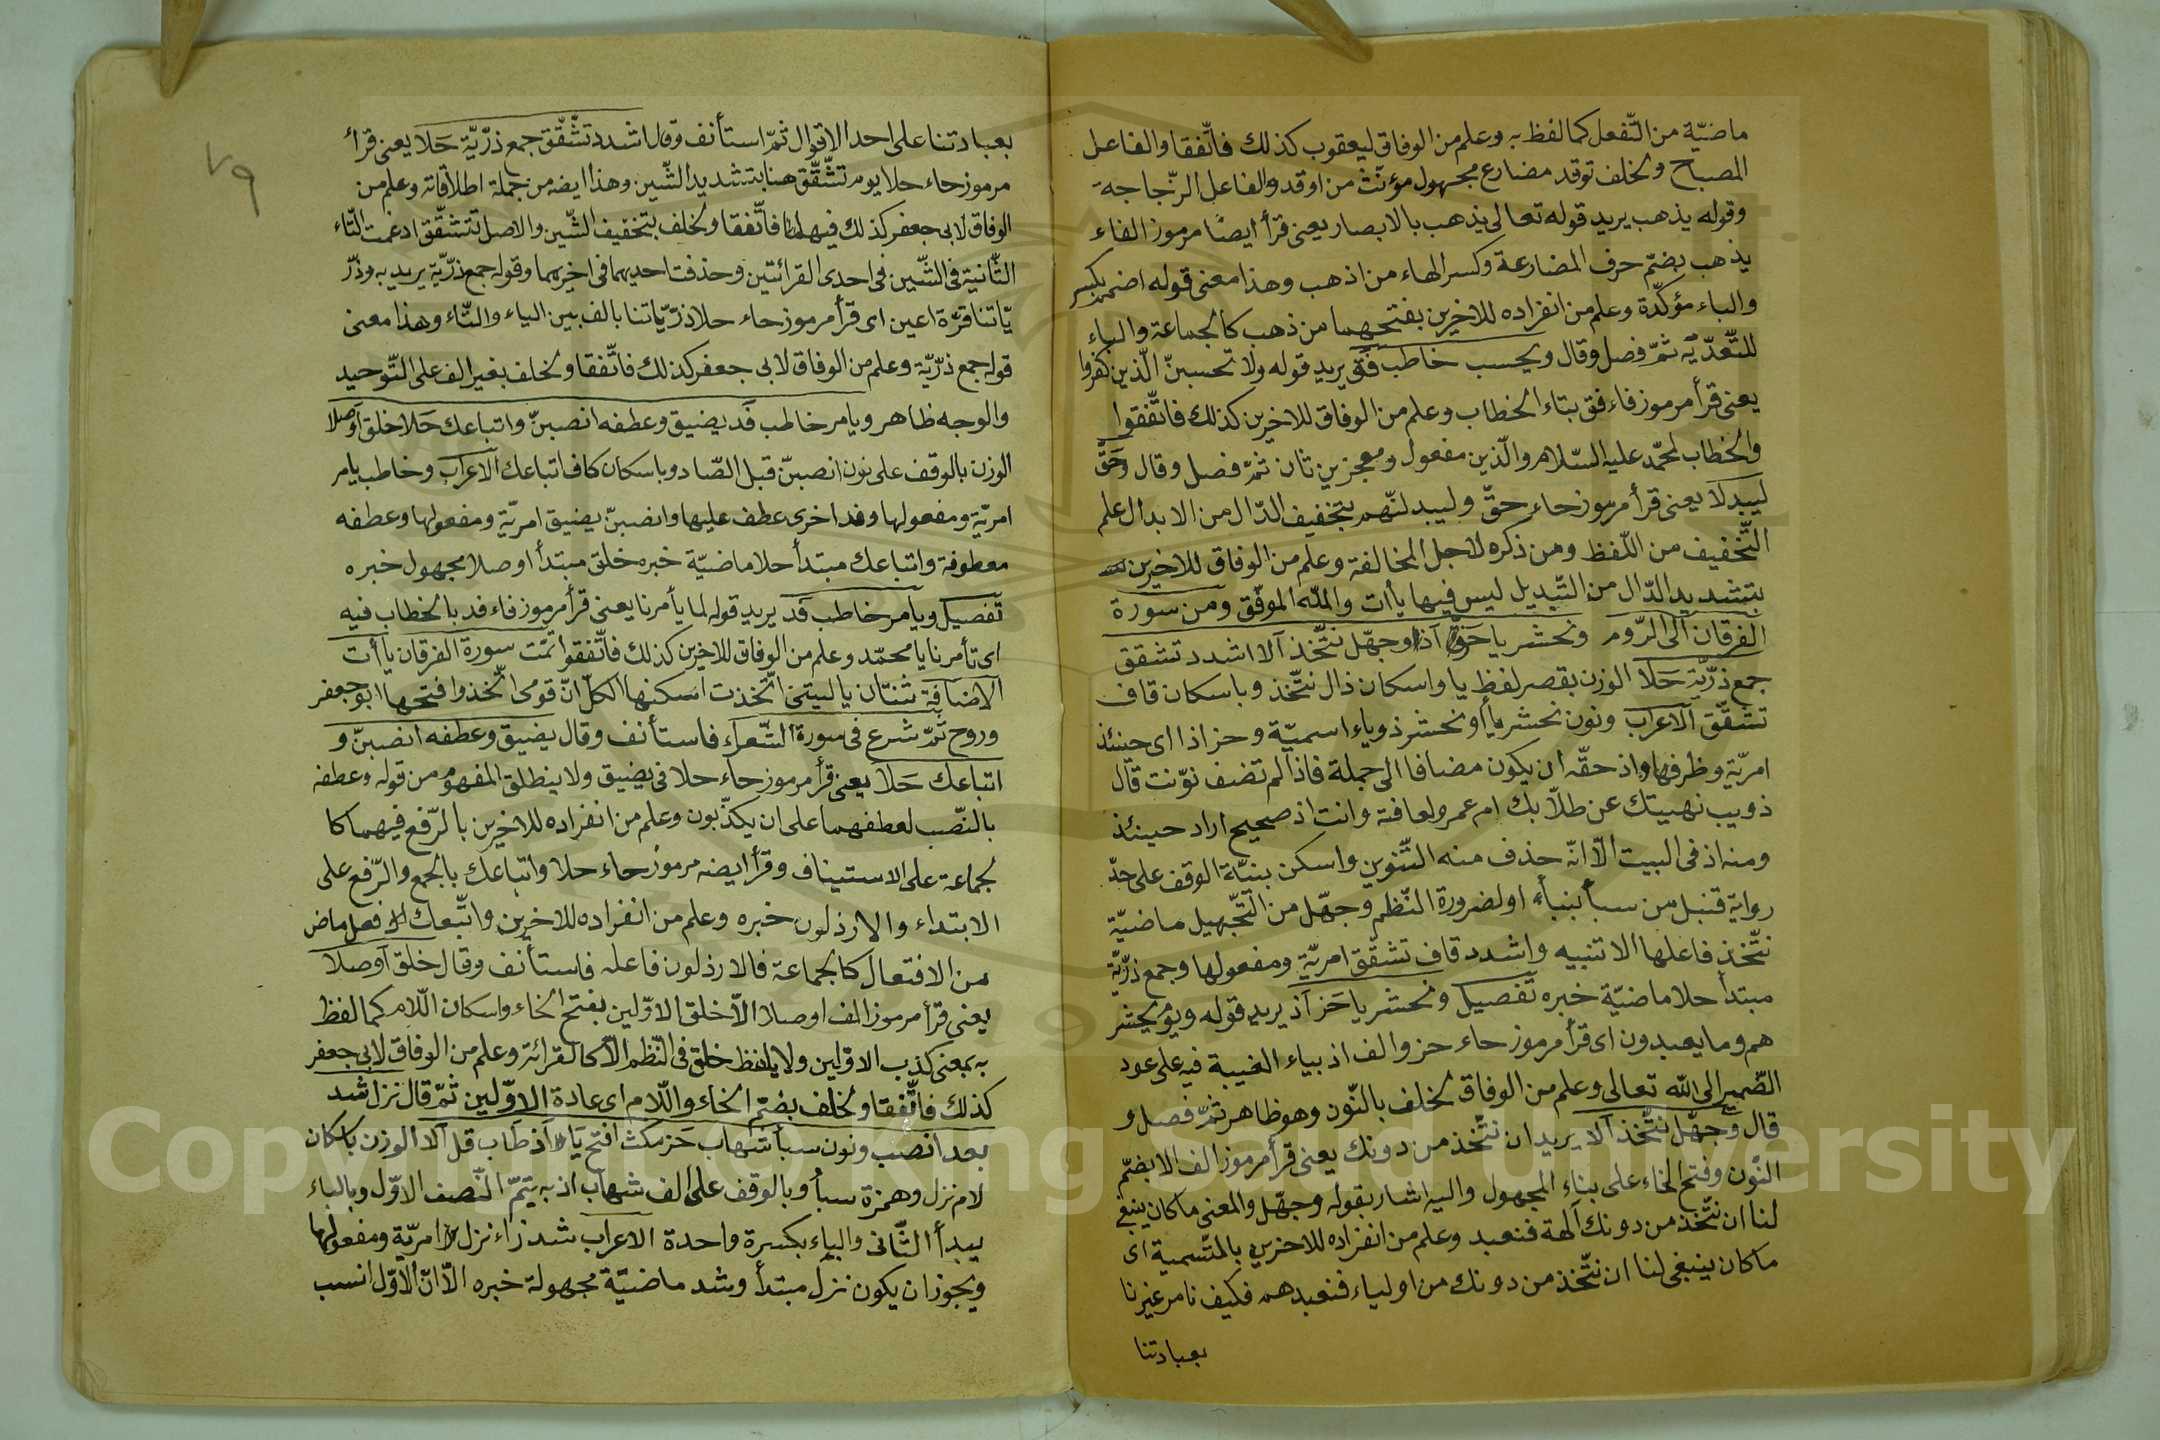 ماضيّة من التّفعل كما لفظ به وعلم من الوفاق ليعقوب كذلك فاتّفقا والفاعل
المصباح ولخلف توقد مضارع مجهول مؤنّث من اوقد والفاعل الزّجاجة
وقوله يذهب يريد قوله تعالى يذهب بالابصار يعنى قرأ ايضًا مرموز الفاء
يذهب بضمّ حرف المضارعة وكسر الهاء من اذهب وهذا معنى قوله اضمم بكسر
والباء مؤكّدة وعلم من انفراده للاخرين بفتحهما من ذهب كالجماعة والباء
للتّعدّيه ثمّ فصل وقال ويحسب خاطب فق يريد قوله ولا تحسبنّ الّذين كفروا
يعنى قرأ مرموز فاء فق بتاء الخطاب وعلم من الوفاق للاخرين كذلك فاتّفقوا
والخطاب لمحمّد عليه السّلام والّذين مفعول ومعجزين ثان ثمّ فصل وقال وحقّ
ليبدلا يعنى قرأ مرموز حاء حقّ وليبدلنّهم بتخفيف الدّال من الابدال علم
التّخفيف من اللّفظ ومن ذكره لاجل المخالفة وعلم من الوفاق للاخرين
بتشديد الدّال من التّبديل ليس فيها يأات والله الموفّق ومن سورة
الفرقان الى الرّوم ونحشر يا حز اذ وجهّل نتّخذ آلا اشدد تشقق
جمع ذرّيّة حَلا الوزن بقصر لفظ يا واسكان ذال نتّخذ وباسكان قاف
تشقّق الاعراب ونون نحشر يأ أو نحشر ذو ياء اسميّة وحز اذا اى حينئذ
امريّة وظرفها واذ حقّه ان يكون مضافا الى جملة فاذا لم تضف نوّنت قال
ذويب نهيتك عن طلّابك ام عمرو لعافتة وانت اذ صحيح اراد حينئذ
ومنه اذ فى البيت الّا انّه حذف منه التّنوين واسكن بنيّة الوقف على حدّ
رواية قنبل من سبأ بنبأ او لضرورة النّظم وجهّل من التّجهيل ماضيّة
نتّخذ فاعلها الا تنبيه واشدد قاف تشقّق امريّة ومفعولها وجمع ذرّيّة
مبتدأ حلا ماضيّة خبره تفصيل ونحشر يا حَز اذ يريد قوله ويوم يحشر
هم وما يعبدون اى قرأ مرموز حاء حز والف اذ بياء الغيبة فيه على عود
الضّمير الى الله تعالى وعلم من الوفاق لخلف بالنّون وهو ظاهر ثمّ فصل و
قال وجهّل نتّخذ آلا يريد ان نتّخذ من دونك يعنى قرأ مرموز الف الا بضمّ
النّون وفتح الخاء على بناء المجهول واليه اشار بقوله وجهّل والمعنى ما كان ينبغى
لنا ان نتّخذ من دونك آلهة فنعبد وعلم من انفراده للاخرين بالتّسمية اى
ما كان ينبغى لنا ان نتّخذ من دونك من اولياء فنعبدهم فكيف نامر غيرنا
بعبادتنا
٧٩
بعبادتنا على احد الاقوال ثمّ استأنف وقال اشدد تشّقّق جمع ذرّيّة حَلا يعنى قرأ
مرموز حاء حلا يوم تشّقّق هنا بتشديد الشّين وهذا ايضه من جملة اطلاقاته وعلم من
الوفاق لابى جعفر كذلك فيهما فاتّفقا ولخلف بتخفيف الشّين والاصل تتشقّق ادغمت التّاء
الثّانية فى الشّين فى احدى القرائتين وحذفت احديهما فى اخريهما وقوله جمع ذرّيّة يريد به وذرّ
يّاتنا قرّة اعين اى قرأ مرموز حاء حلا ذرّيّاتنا بالف بين الياء والتّاء وهذا معنى
قوله جمع ذرّيّة وعلم من الوفاق لابى جعفر كذلك فاتّفقا ولخلف بغير الف على التّوحيد
والوجه ظاهر ويامر خاطب فَد يضيق وعطفه انصبنّ واتباعك حَلا خلق أوصلا
الوزن بالوقف على نون انصبنّ قبل الصّاد وباسكان كاف اتباعك الاعراب وخاطب يامر
امريّة ومفعولها وفد اخرى عطف عليها وانصبنّ يضيق امريّة ومفعولها وعطفه
معطوفة واتباعك مبتدأ حلا ماضيّة خبره خلق مبتدأ اوصلا مجهول خبره
تفصيل ويامر خاطب فَد يريد قوله لما يأمرنا يعنى قرأ مرموز فاء فد بالخطاب فيه
اى تأمرنا يا محمّد وعلم من الوفاق للاخرين كذلك فاتّفقوا تمّت سورة الفرقان يا أت
الاضافة ثنتان يا ليتنى اتّخذت اسكنها الكلّ انّ قومى اتّخذوا فتحها ابو جعفر
وروح ثمّ شرع فى سورة الشّعراء فاستأنف وقال يضيق وعطفه انصبنّ و
اتباعك حَلا يعنى قرأ مرموز حاء حلا فى يضيق ولا ينطلق المفهوم من قوله وعطفه
بالنّصب لعطفهما على ان يكذّبون وعلم من انفراده للاخرين بالرّفع فيهما كا
لجماعة على الاستيناف وقرأ ايضه مرموز حاء حلا واتباعك بالجمع والرّفع على
الابتداء والارذلون خبره وعلم من انفراده للاخرين واتّبعك فعل ماض
من الافتعال كالجماعة فالارذلون فاعله فاستأنف وقال خلق آوصلا
يعنى قرأ مرموز الف اوصلا الّا خلق الاوّلين بفتح الخاء واسكان اللّام كما لفظ
به بمعنى كذب الاوّلين ولا يلفظ خلق فى النّظم الّا كالقرائة وعلم من الوفاق لابى جعفر
كذلك فاتّفقا ولخلف بضمّ الخاء واللّام اى عادة الاوّلين ثمّ قال نزل شد
بعد انصب ونون سبأ شهاب حَز مكث افتح يا اذ طَاب قل آلا الوزن باسكان
لام نزل وهمزة سبأ وبالوقف على الف شهاب اذ به يتمّ النّصف الاوّل وبالباء
يبدأ الثّانى والباء بكسرة واحدة الاعراب شد زاء نزل امريّة ومفعولها
ويجوز ان يكون نزل مبتدأ وشد ماضيّة مجهولة خبره الّا انّ الاوّل انسب
Copyright © King Saud University